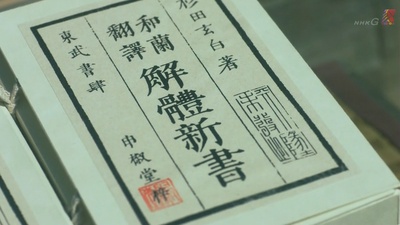 NHK G
杉田玄白著
和蘭
翻譯
解體新書
東武書肆
申椒堂
梓